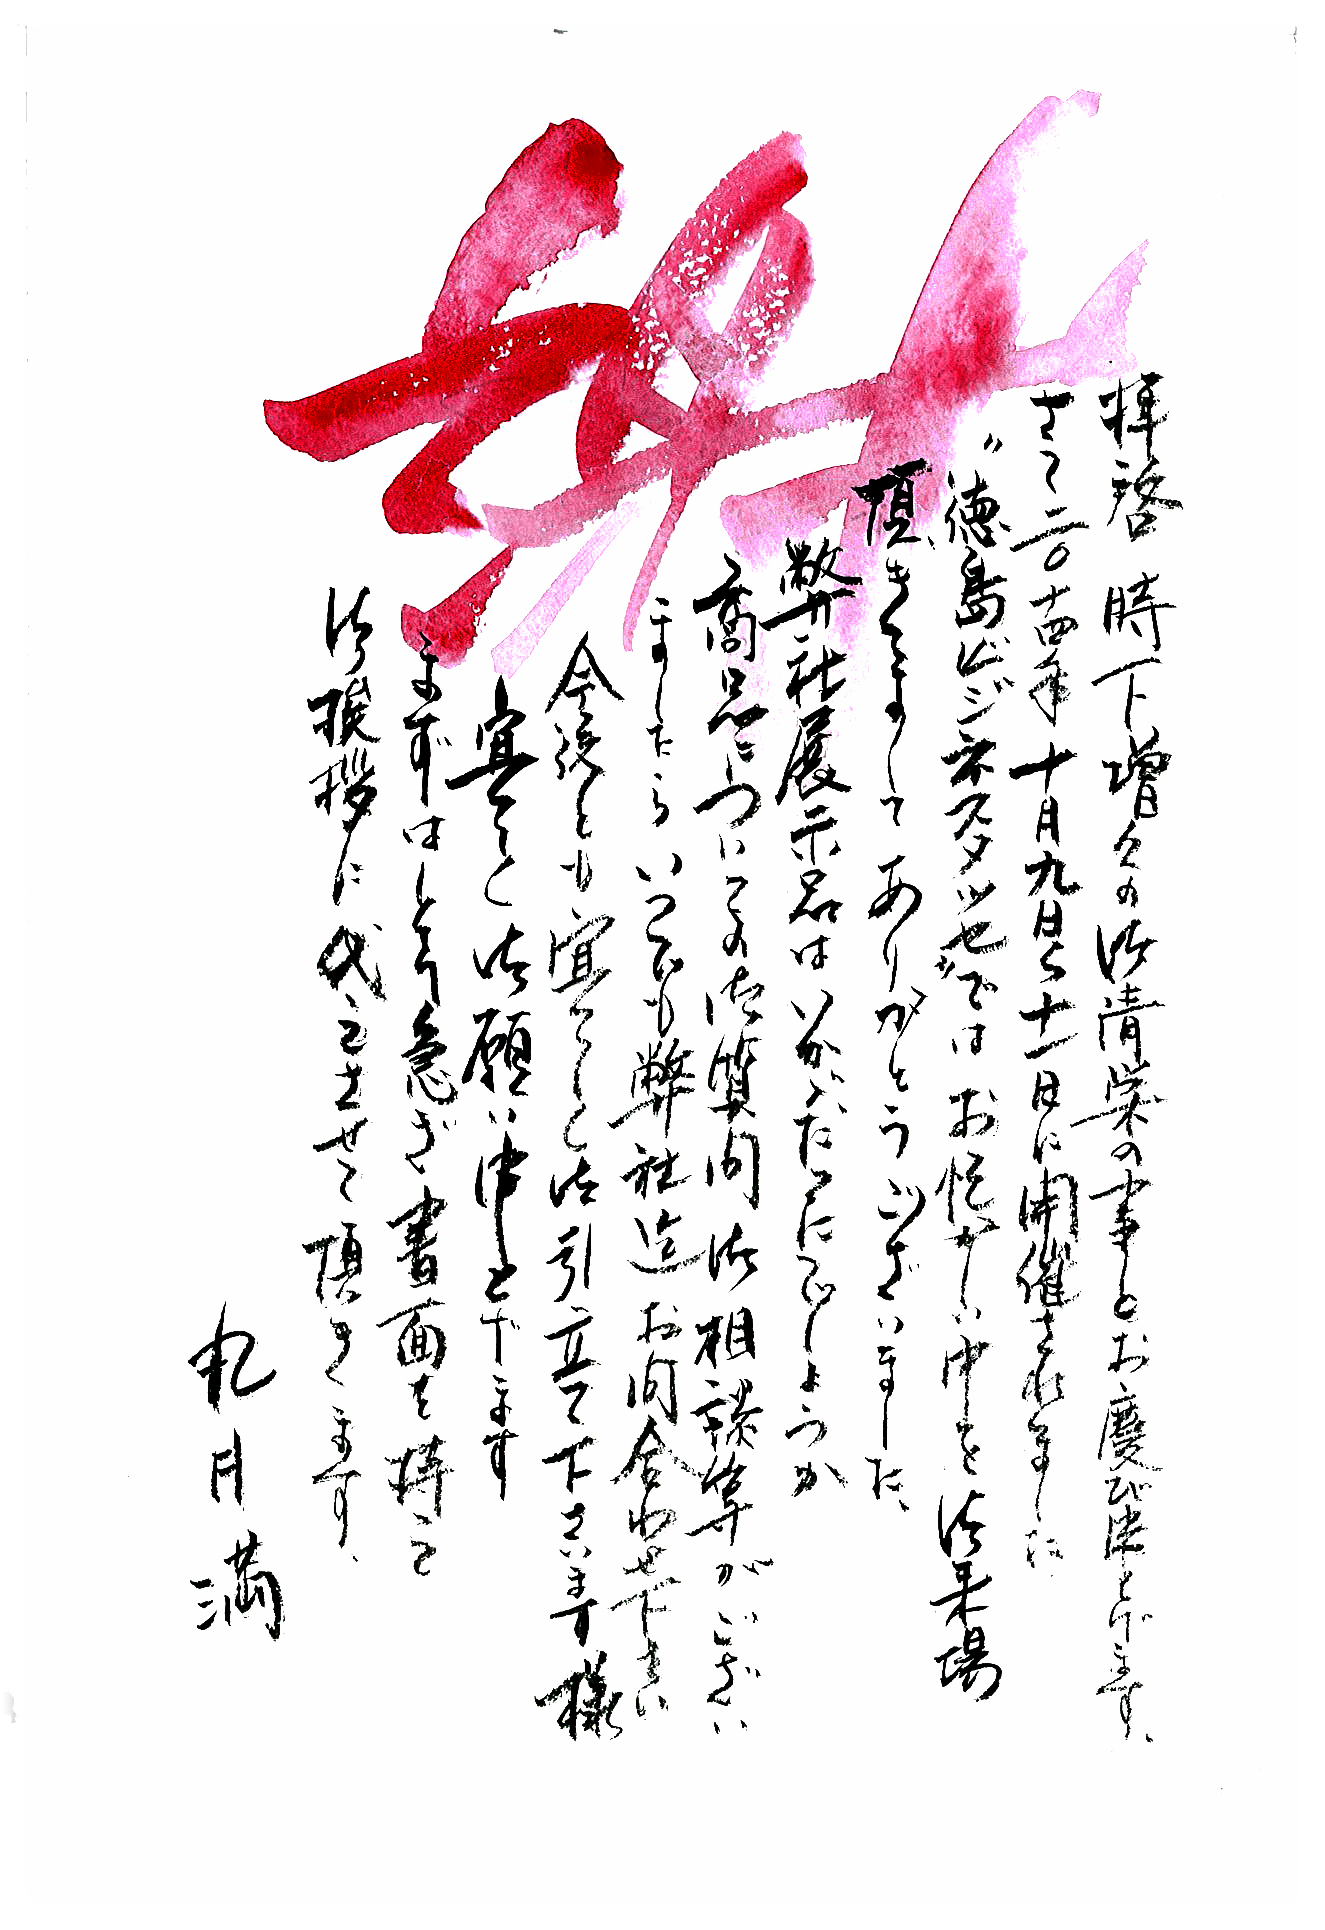 拝啓 時下増々の御清栄の事とお慶び申し上げます、
さて二〇十四年十月九日から十一日に開催されました
〃徳島ビジネスメッセ〃ではお忙がしい中を御来場
頂きまして ありがとうございました、
弊社展示品はいかがだったでしょうか
商品についての御質問 御相談等がござい
ましたら いつでも弊社迄お問合わせ下さい
今後とも宜しく御引立て下さいます様
宜しく御願い申し上げます
まずはとり急ぎ書面を持ちて
御挨拶に代えさせて頂きます、